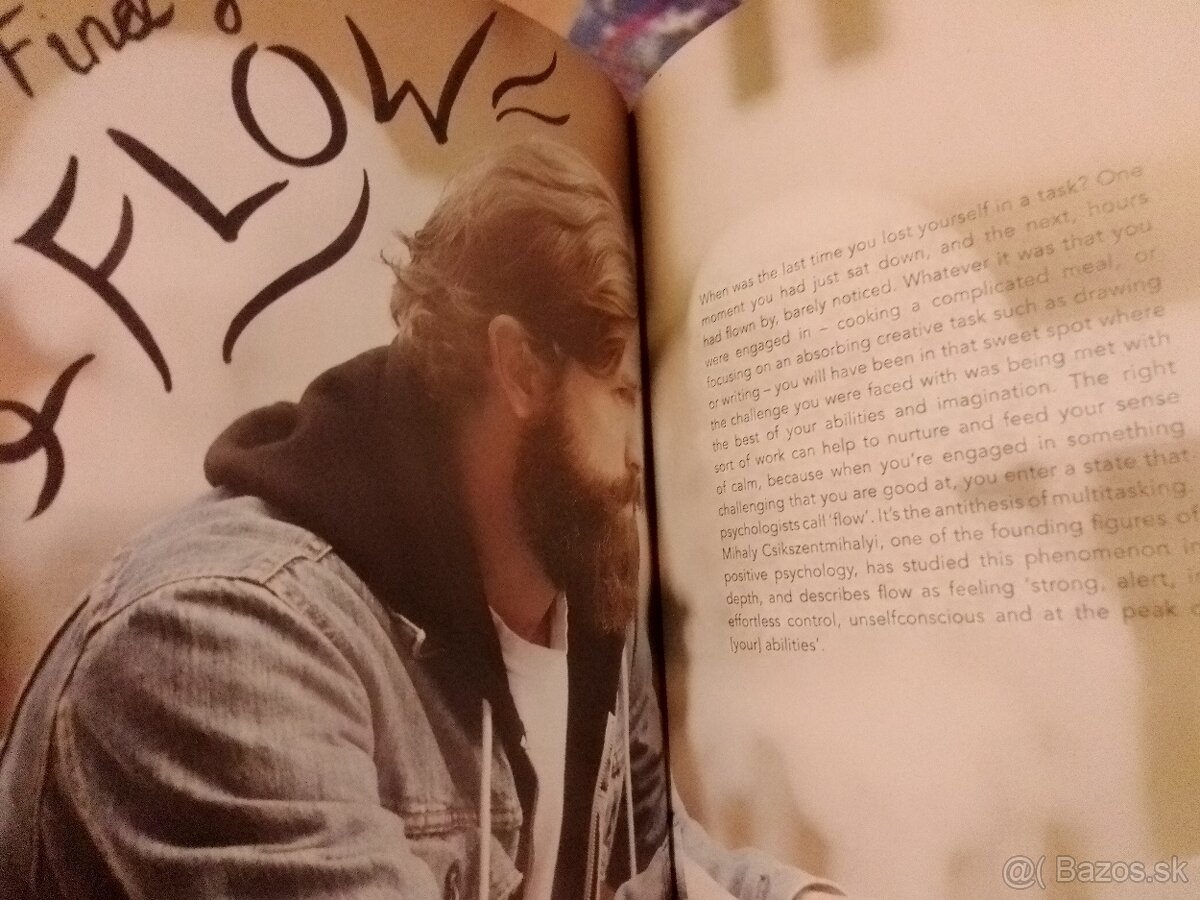 Find
FLOW
When was the last time you lost yourself in a task? One
moment you had just sat down, and the next, hours
had flown by, barely noticed. Whatever it was that you
were engaged in – cooking a complicated meal, or
focusing on an absorbing creative task such as drawing
or writing – you will have been in that sweet spot where
the challenge you were faced with was being met with
the best of your abilities and imagination. The right
sort of work can help to nurture and feed your sense
of calm, because when you're engaged in something
challenging that you are good at, you enter a state that
psychologists call 'flow'. It's the antithesis of multitasking.
Mihaly Csikszentmihalyi, one of the founding figures of
positive psychology, has studied this phenomenon in
depth, and describes flow as feeling 'strong, alert, in
effortless control, unselfconscious and at the peak
[your] abilities'.
@( Bazos.sk